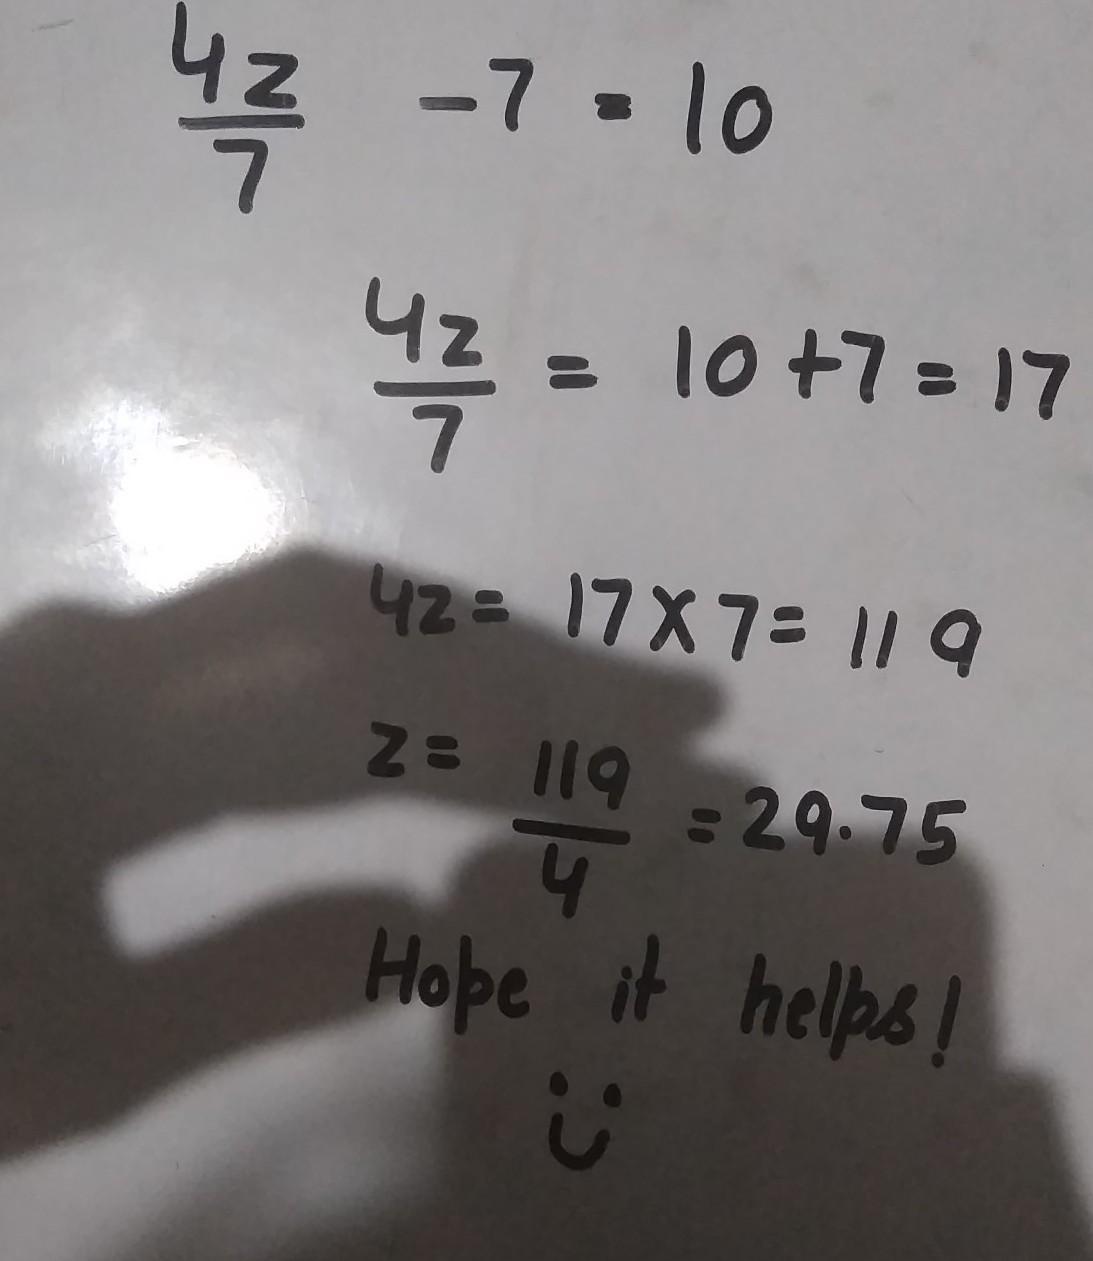 4z/7 - 7 = 10
4z/7 = 10 + 7 = 17
4z = 17 × 7 = 119
z = 119/4 = 29.75
Hope it helps!